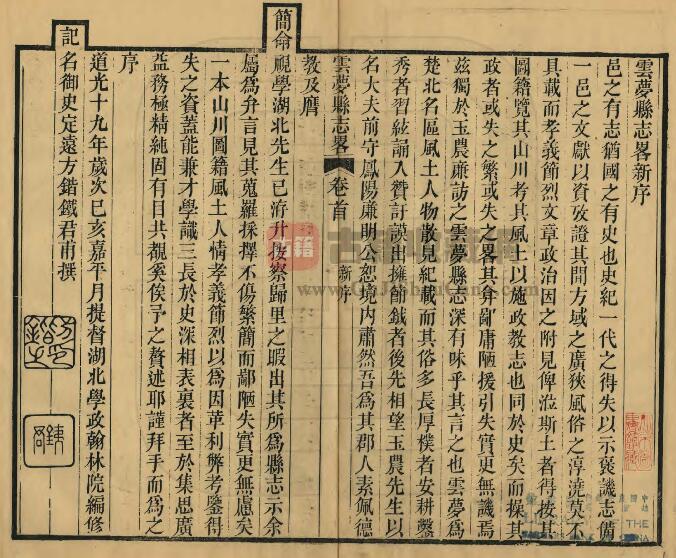 雲夢縣志畧新序
邑之有志猶國之有史也史紀一代之得失以示褒譏志備
一邑之文獻以資攷證其間方域之廣狹風俗之淳澆莫不
具載而孝義節烈文章政治因之附見俾涖斯土者得按其
圖籍覽其山川考其風土以施政教志也同於史矣而操其
政者或失之繁或失之畧其弇鄙庸陋援引失實更無譏焉
兹獨於玉農廉訪之雲夢縣志深有味乎其言之也雲夢為
楚北名區風土人物散見紀載而其俗多長厚樸者安耕鑿
秀者習絃誦入贊訏謨出擁節鉞者後先相望玉農先生以
名大夫前守鳳陽廉明公恕境内肅然吾為其郡人素佩德
雲夢縣志畧
卷首
新序
教及膺
簡命視學湖北先生已洊升按察歸里之暇出其所為縣志示余
屬為弁言見其蒐羅採擇不傷繁簡而鄙陋失實更無慮矣
一本山川圖籍風土人情孝義節烈以為因革利弊考鑒得
失之資蓋能兼才學識三長於史深相表裏者至於集思廣
益務極精純固有目共覩奚俟予之贅述耶謹拜手而為之
序
道光十九年歲次己亥嘉平月提督湖北學政翰林院編修
記名御史定遠方鍇鐵君甫撰